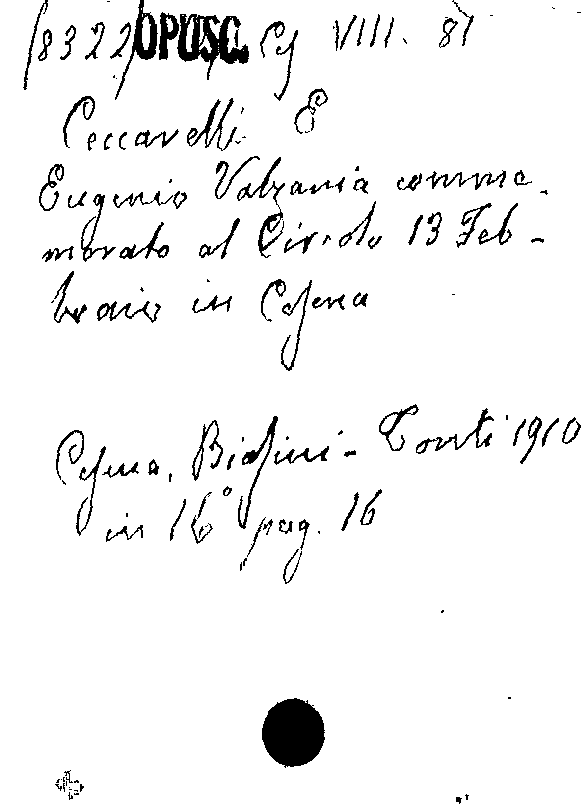 (8322) OPUSC. Cs VIII. 81
Ceccarelli E
Eugenio Valzania comme-
morato al Circolo 13 Feb-
braio in Cesena
Cesena, Biasini-Tonti 1910
in 16° pag. 16